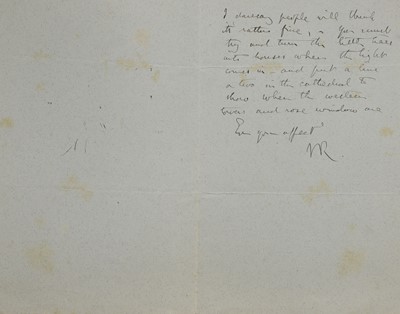 I daresay people will think
its rather fine, & you must
try and turn the hills here
into houses where the light
comes in – and put a line
or two in the cathedral to
show where the western
towers and rose window are
Ever your affect
VR.